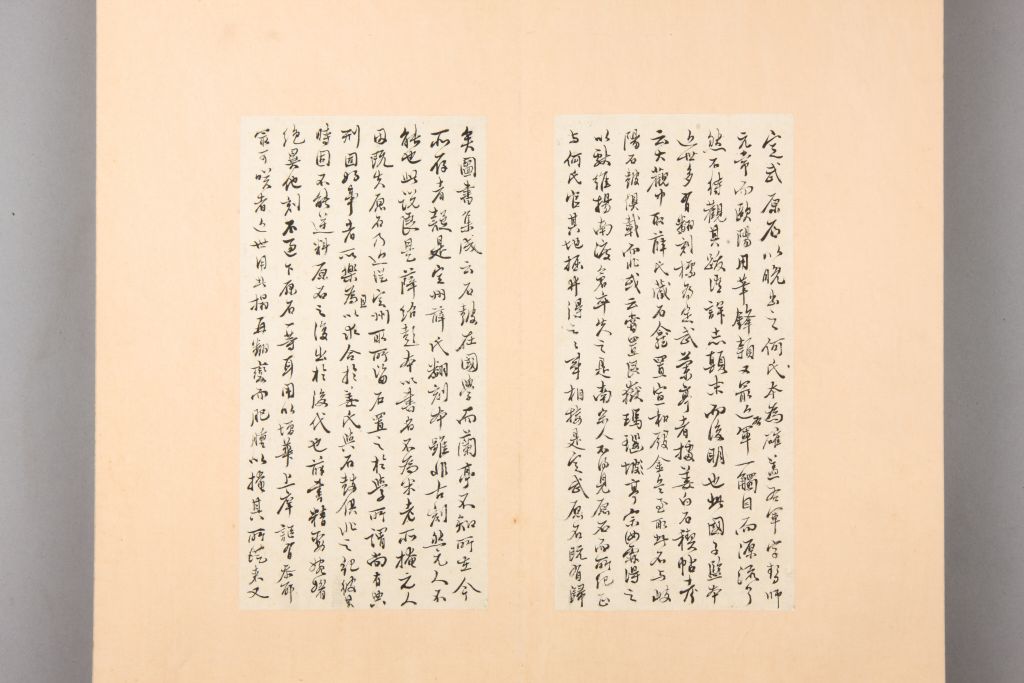 定武原石以晚出之何氏本為確蓋右軍字形師
元常而歐陽用筆鋒穎又最近右軍一觸目而源流了
然不待觀其跋語詳志顛末而後明也此國子監本
近世多有翻刻標為定武蘭亭者據姜白石禊帖考
云大觀中取薛氏藏石龕置宣和殿金兵至取此石與岐
陽石鼓俱載而北或云嘗置艮嶽瑪瑙城亭宗汝霖得之
以馱維揚南渡倉卒失之是南宋人不得見原石而所紀正
與何氏官其地掘井得之之事相接是定武原石既有歸
矣圖書集成云石鼓在國學而蘭亭不知所在今
所存者疑是定州薛氏翻刻本雖非古刻然元人不
能也此說良是薛紹彭本以書名不為米老所掩元人
因既失原石乃近從定州取所留石置之於學所謂尚有典
刑因好事者所樂為且以求合於姜氏與石鼓俱北之紀彼其
時固不能逆料原石之復出於後代也薛書精勁婉
絕異他刻不過下原石一等耳用以
最可咲者近世用此搨再翻變而肥腫以掩其所從來又